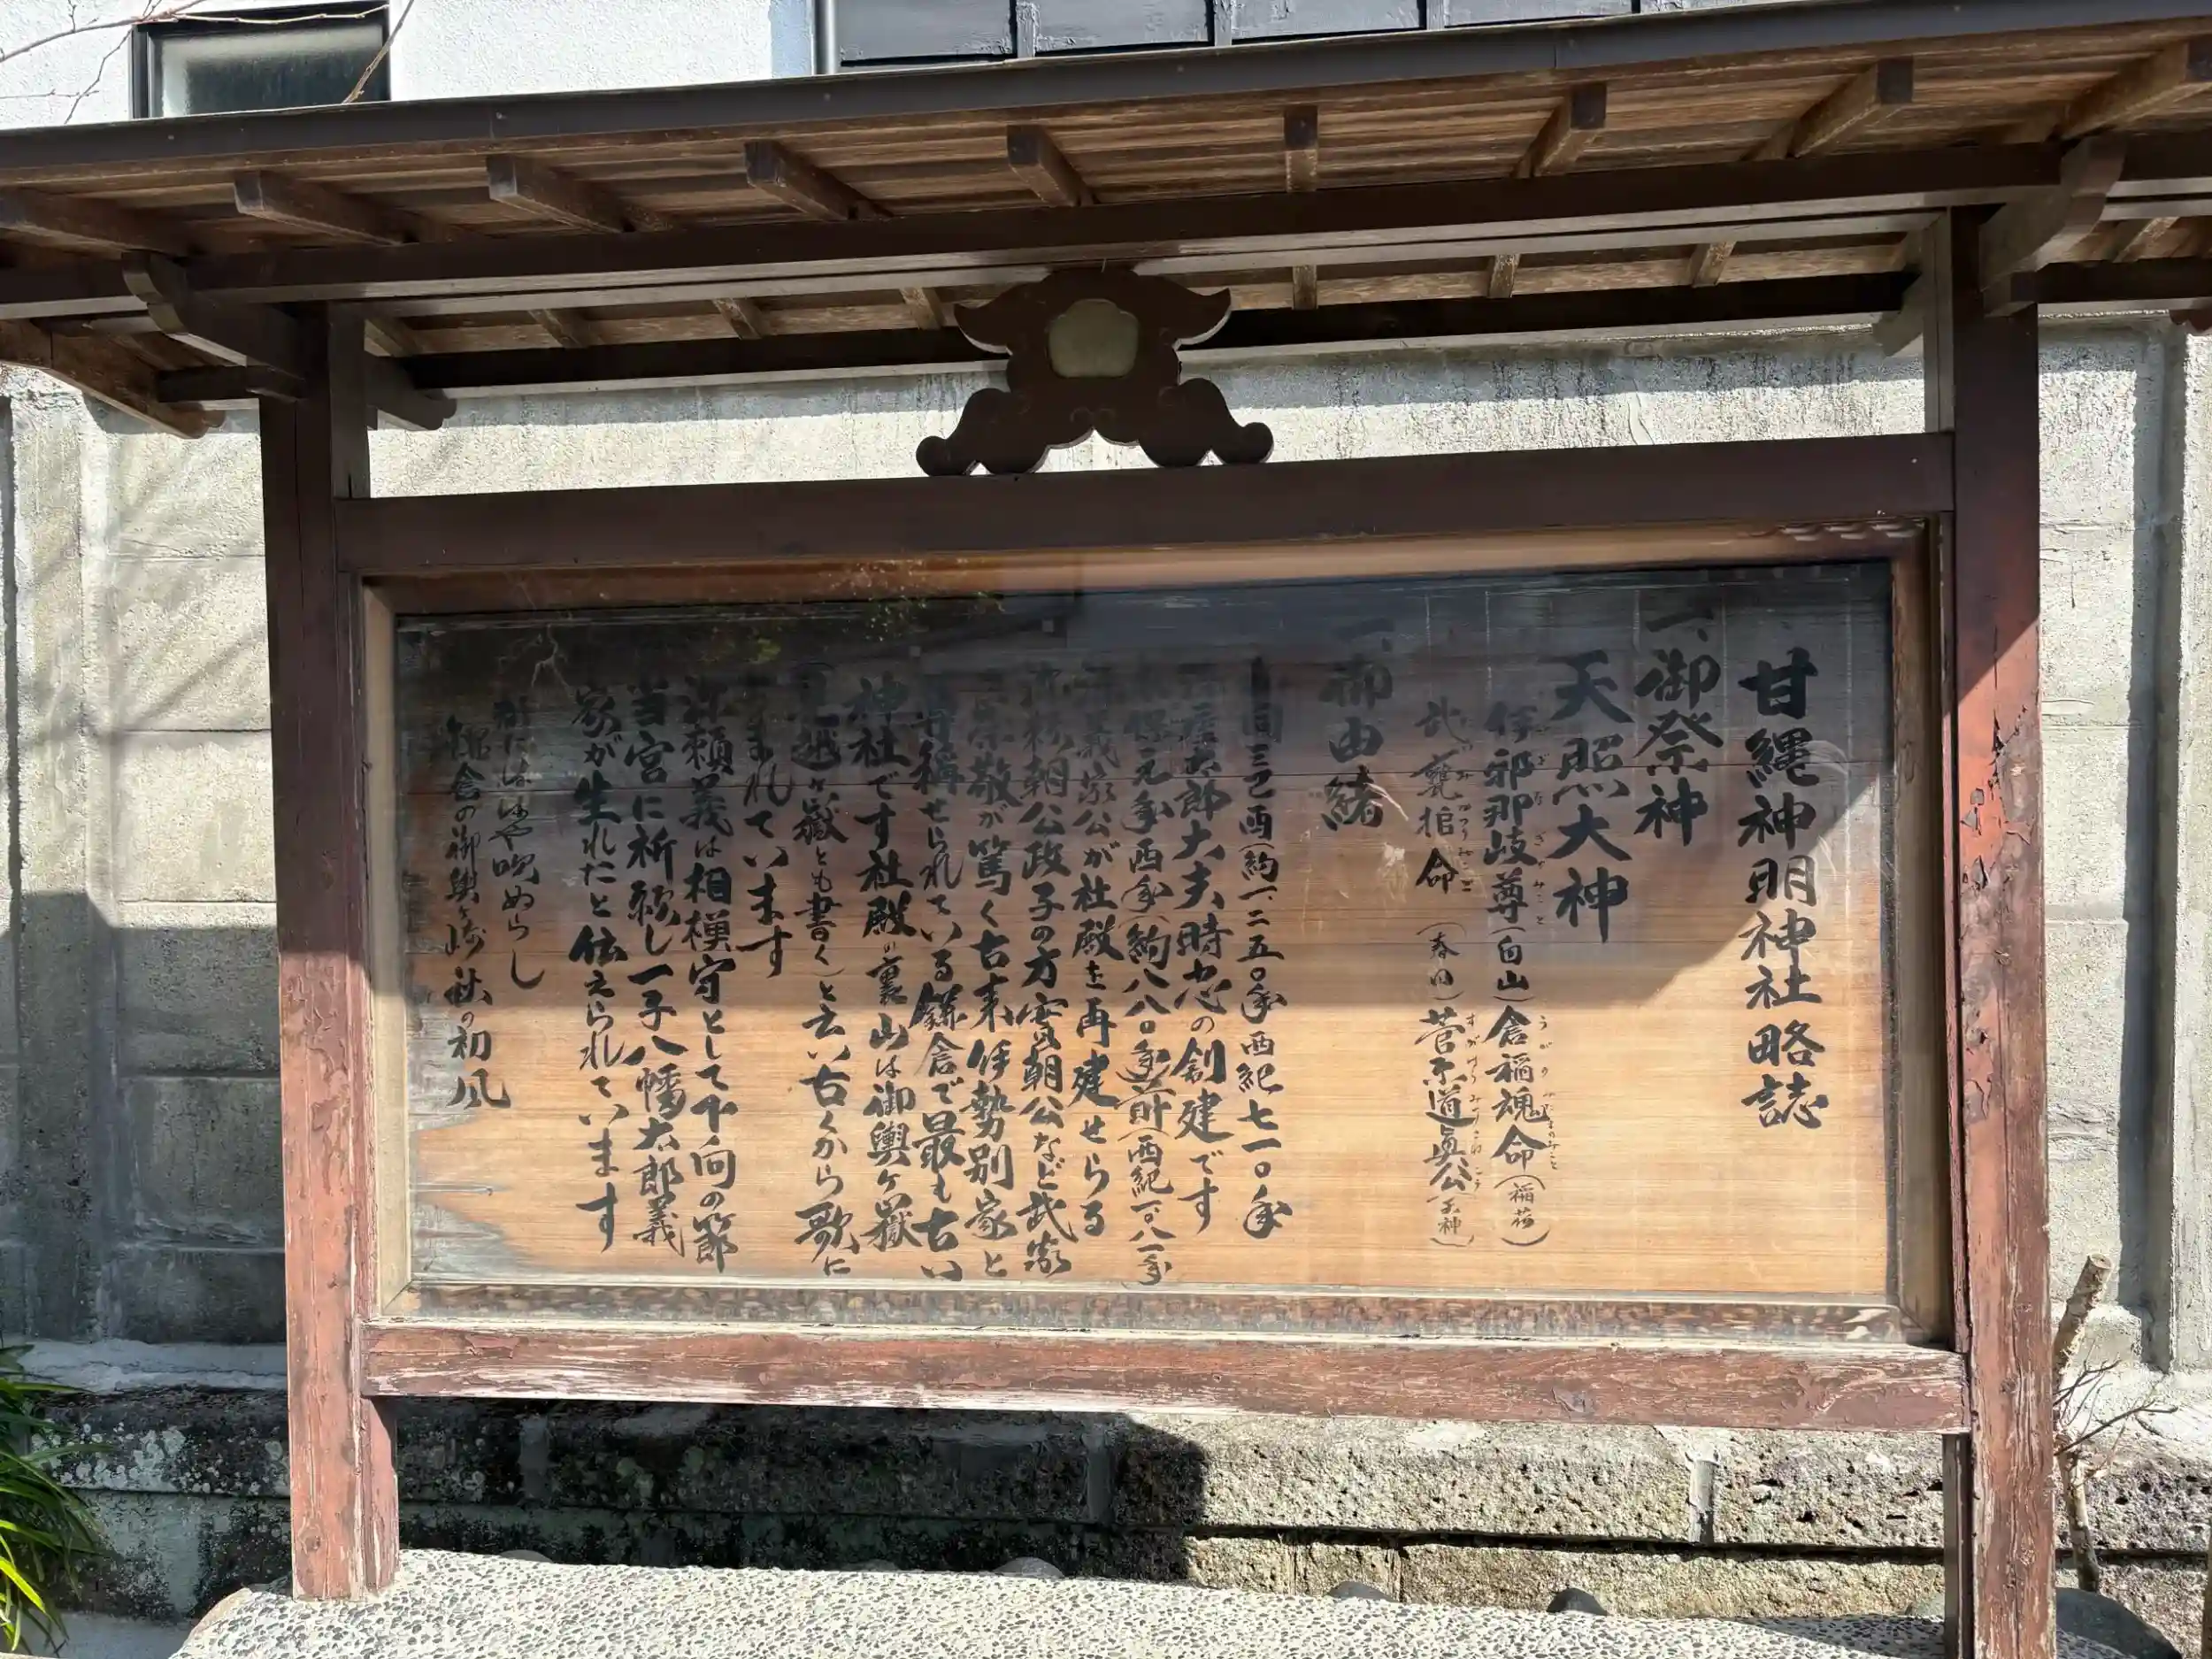 甘縄神明神社略誌
一、御祭神
天照大神
伊邪那岐尊(白山)倉稲魂命(稲荷)
武甕槌命(春日)菅原道真公(天神)
一、御由緒
和同三己酉(約一、二五〇年西紀七一〇年
染屋太郎大夫時忠の創建です
永保元年酉年(約八八〇年前(西紀一〇八一年
源義家公が社殿を再建せらる
源頼朝公政子の方実朝公など武家
の崇敬が篤く古来伊勢別家と
尊称せられている鎌倉で最も古い
神社です社殿の裏山は御輿ヶ嶽
見越ヶ嶽とも書く)と云い古くから歌に
よまれています
源頼義は相模守として下向の節
当宮に祈願し一子八幡太郎義
家が生れたと伝えられています
都にははや吹ぬらし
鎌倉の御輿ヶ崎秋の初風